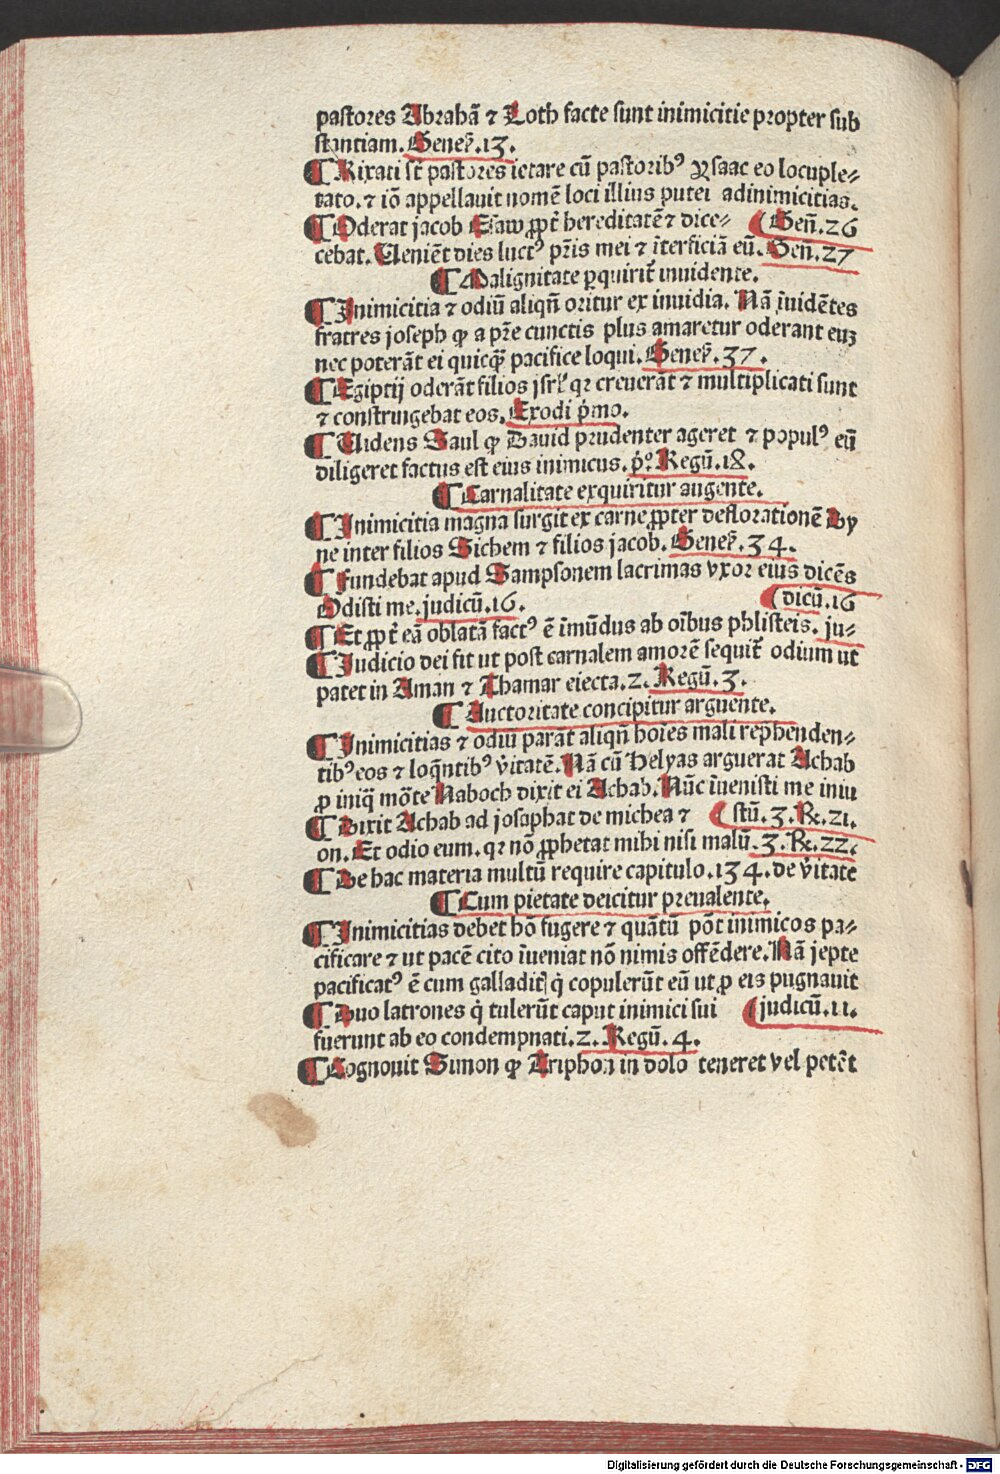 pastores Abrahā ⁊ Loth facte sunt inimicitie propter sub
stantiam. Geneꝭ. 13.
¶ Rixati st̄ pastores ierare cū pastoribꝰ Ysaac eo locuple⸗
tato. ⁊ iō appellauit nomē loci illius putei adinimicitias.
¶ Oderat jacob Esaw ꝓpt̄ hereditatē ⁊ dice⸗ (Geñ. 26
cebat. Ueniēt dies luctꝰ pr̄is mei ⁊ īterficiā eū. Geñ. 27
¶ Malignitate ꝑquirit̄ inuidente.
¶ Inimicitia ⁊ odiū aliqñ oritur ex inuidia. Nā īuidētes
fratres joseph ꝙ a pr̄e cunctis plus amaretur oderant euꝫ
nec poterāt ei quicꝙ̄ pacifice loqui. Geneꝭ. 37.
¶ Egiptij oderāt filios jsrl̓ qꝛ creuerāt ⁊ multiplicati sunt
⁊ constringebat eos. Exodi p̓mo.
¶ Uidens Saul ꝙ Dauid prudenter ageret ⁊ populꝰ eū
diligeret factus est eius inimicus. p̓º. Regū. 18.
¶ Carnalitate exquiritur augente.
¶ Inimicitia magna surgit ex carne ꝓpter deflorationē Dy
ne inter filios Sichem ⁊ filios jacob. Geneꝭ. 34.
¶ Fundebat apud Sampsonem lacrimas vxor eius dicēs
Odisti me. judicū. 16. (dicū. 16
¶ Et ꝓpt̄ eā oblatā factꝰ ē īmūdus ab oībus phlisteis. ju⸗
¶ Judicio dei fit ut post carnalem amorē sequit̄ odium ut
patet in Aman ⁊ Thamar eiecta. 2. Regū. 3.
¶ Auctoritate concipitur arguente.
¶ Inimicitias ⁊ odiū parāt aliqñ hoīes mali rep̄henden⸗
tibꝰ eos ⁊ loq̄ntibꝰ v̓itatē. Nā cū Helyas arguerat Achab
ꝓ iniq̄ mōte Naboch dixit ei Achab. Nūc īuenisti me iniu
¶ Dixit Achab ad josaphat de michea ⁊ (stū. 3. Rͤ. 21.
on. Et odio eum. qꝛ nō ꝓphetat mihi nisi malū. 3. Rͤ. 22.
¶ De hac materia multū require capitulo. 134. de v̓itate
¶ Cum pietate deicitur preualente.
¶ Inimicitias debet hō fugere ⁊ quātū pōt inimicos pa⸗
cificare ⁊ ut pacē cito īueniat nō nimis offēdere. Nā jepte
pacificatꝰ ē cum galladitꝭ q̓ copulerūt eū ut ꝓ eis pugnauit
¶ Duo latrones q̓ tulerūt caput inimici sui (judicū. 11.
fuerunt ab eo condempnati. 2. Regū. 4.
¶ Cognouit Simon ꝙ Triphon in dolo teneret vel petēt
Digitalisierung gefördert durch die Deutsche Forschungsgemeinschaft - DFG